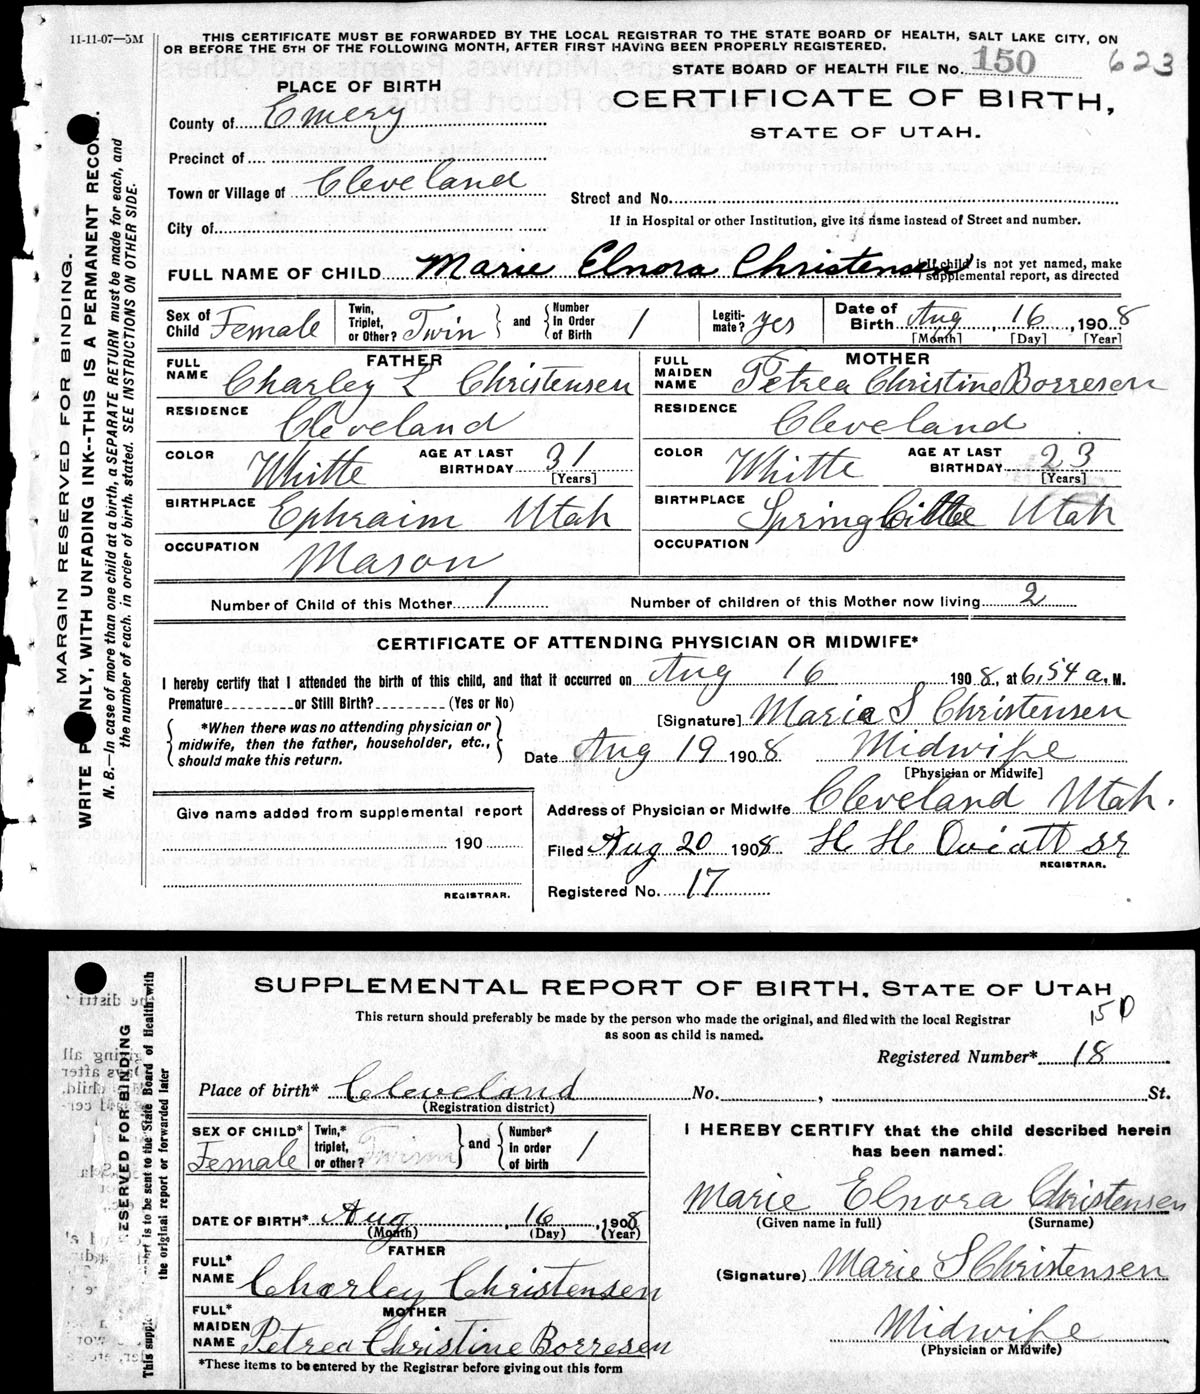 11-11-07—5M
THIS CERTIFICATE MUST BE FORWARDED BY THE LOCAL REGISTRAR TO THE STATE BOARD OF HEALTH, SALT LAKE CITY, ON
OR BEFORE THE 5TH OF THE FOLLOWING MONTH, AFTER FIRST HAVING BEEN PROPERLY REGISTERED.
STATE BOARD OF HEALTH FILE No. 150 623
PLACE OF BIRTH
CERTIFICATE OF BIRTH,
STATE OF UTAH.
County of Emery
Precinct of
Town or Village of Cleveland
Street and No.
City of
If in Hospital or other Institution, give its name instead of Street and number.
FULL NAME OF CHILD Marie Elnora Christensen
If child is not yet named, make
supplemental report, as directed
Sex of Child Female
Twin, Triplet, or Other? Twin } and { Number in Order of Birth 1
Legiti-mate? yes
Date of Birth Aug, 16, 1908
[Month] [Day] [Year]
FATHER
FULL NAME Charley L Christensen
RESIDENCE Cleveland
COLOR Whitte
AGE AT LAST BIRTHDAY 31
[Years]
BIRTHPLACE Ephraim Utah
OCCUPATION Mason
MOTHER
FULL MAIDEN NAME Petrea Christine Borresen
RESIDENCE Cleveland
COLOR Whitte
AGE AT LAST BIRTHDAY 23
[Years]
BIRTHPLACE Spring Utah
OCCUPATION
Number of Child of this Mother 1
Number of children of this Mother now living 2
CERTIFICATE OF ATTENDING PHYSICIAN OR MIDWIFE*
I hereby certify that I attended the birth of this child, and that it occurred on Aug 16 1908, at 6,54 a. M.
Premature or Still Birth? (Yes or No)
[Signature] Marie S Christensen
*When there was no attending physician or
midwife, then the father, householder, etc.,
should make this return.
Date Aug 19 1908 Midwife
[Physician or Midwife]
Give name added from supplemental report
190
REGISTRAR.
Address of Physician or Midwife Cleveland Utah.
Filed Aug 20 1908 H H Oviatt sr
REGISTRAR.
Registered No. 17
MARGIN RESERVED FOR BINDING.
WRITE P NLY, WITH UNFADING INK--THIS IS A PERMANENT RECO
N. B.—In case of more than one child at a birth, a SEPARATE RETURN must be made for each, and
the number of each, in order of birth, stated. SEE INSTRUCTIONS ON OTHER SIDE.
SUPPLEMENTAL REPORT OF BIRTH, STATE OF UTAH
150
This return should preferably be made by the person who made the original, and filed with the local Registrar
as soon as child is named.
Registered Number* 18
Place of birth* Cleveland No. , St.
(Registration district)
SEX OF CHILD* Female
Twin,* triplet, or other? Twinn } and { Number* in order of birth 1
DATE OF BIRTH* Aug, 16, 1908
(Month) (Day) (Year)
FATHER
FULL* NAME Charley Christensen
MOTHER
FULL* MAIDEN NAME Petrea Christine Borresen
*These items to be entered by the Registrar before giving out this form
I HEREBY CERTIFY that the child described herein
has been named:
Marie Elnora Christensen
(Given name in full) (Surname)
(Signature) Marie S Christensen
Midwife
(Physician or Midwife)
ESERVED FOR BINDING
is to be sent to the State Board of Health with
the original report or forwarded later
This supple